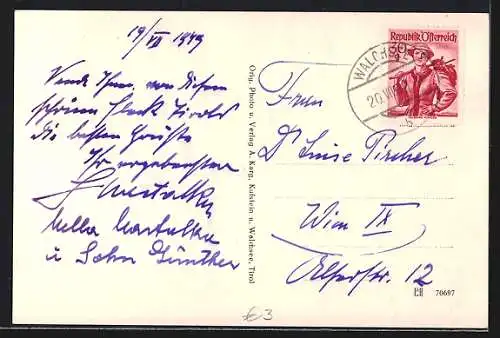 19/VII 1949
Sende Ihnen, von diesem
schönen Fleck Tirols
die besten Grüsse
Ihr ergebenster
Hella
u Sohn Günther
Orig. Photo u. Verlag A. Karg, Kufstein u. Walchsee, Tirol
Republik Österreich
30
WALCHSEE
20.VII
b
Frau
Dr Luise Pircher
Wien IX
Elserstr. 12
70697
€3